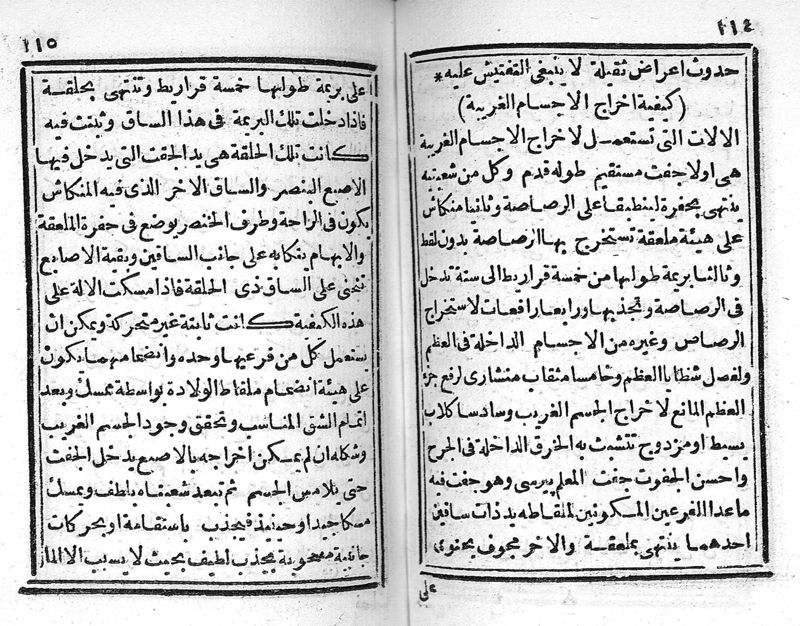 ١١٤
حدوث اعراض ثقيلة لا ينبغى التفتيش عليه *
(كيفية اخراج الاجسام الغريبة)
الالات التى تستعمل لاخراج الاجسام الغريبة
هى اولا جفت مستقيم طوله قدم وكل من شعبتيه
ينتهى بحفرة لينطبقا على الرصاصة وثانيا منكاش
على هيئة ملعقة تستخرج بها الرصاصة بدون لقط
وثالثا بريمة طولها من خمسة قراريط الى ستة تدخل
فى الرصاصة وتجذبها ورابعا رافعات لاستخراج
الرصاص وغيره من الاجسام الداخلة فى العظم
ولفصل شظايا العظم وخامسا مثقاب منشارى لرفع جزء
العظم المانع لاخراج الجسم الغريب وسادسا كلاب
بسيط او مزدوج تتشبث به الخرق الداخلة فى الجرح
واحسن الجفوت جفت المعلم بيرسى وهو جفت فيه
ماعدا الفرعين المسكونين لالتقاطه يد ذات ساقين
احدهما ينتهى بملعقة والاخر مجوف يحتوى
على
١١٥
على بريمة طولها خمسة قراريط وتنتهى بحلقة
فاذا دخلت تلك البريمة فى هذا الساق وثبتت فيه
كانت تلك الحلقة هى يد الجفت التى يدخل فيها
الاصبع البنصر والساق الاخر الذى فيه المنكاش
يكون فى الراحة وطرف الخنصر يوضع فى حفرة الملعقة
والابهام يتكا به على جانب الساقين وبقية الاصابع
تنحنى على الساق ذى الحلقة فاذا مسكت الالة على
هذه الكيفية كانت ثابتة غير متحركة ويمكن ان
يستعمل كل من فرعيها وحده وانضمامهما يكون
على هيئة انضمام ملقاط الولادة بواسطة ممسك وبعد
اتمام الشق المناسب وتحقق وجود الجسم الغريب
وشكله ان لم يمكن اخراجه بالاصبع يدخل الجفت
حتى يلامس الجسم ثم تبعد شعبتاه بلطف ويمسك
مسكا جيدا وحينئذ فيجذب باستقامة او بحركات
جانبية مصحوبة بجذب لطيف بحيث لا يسبب الا الما